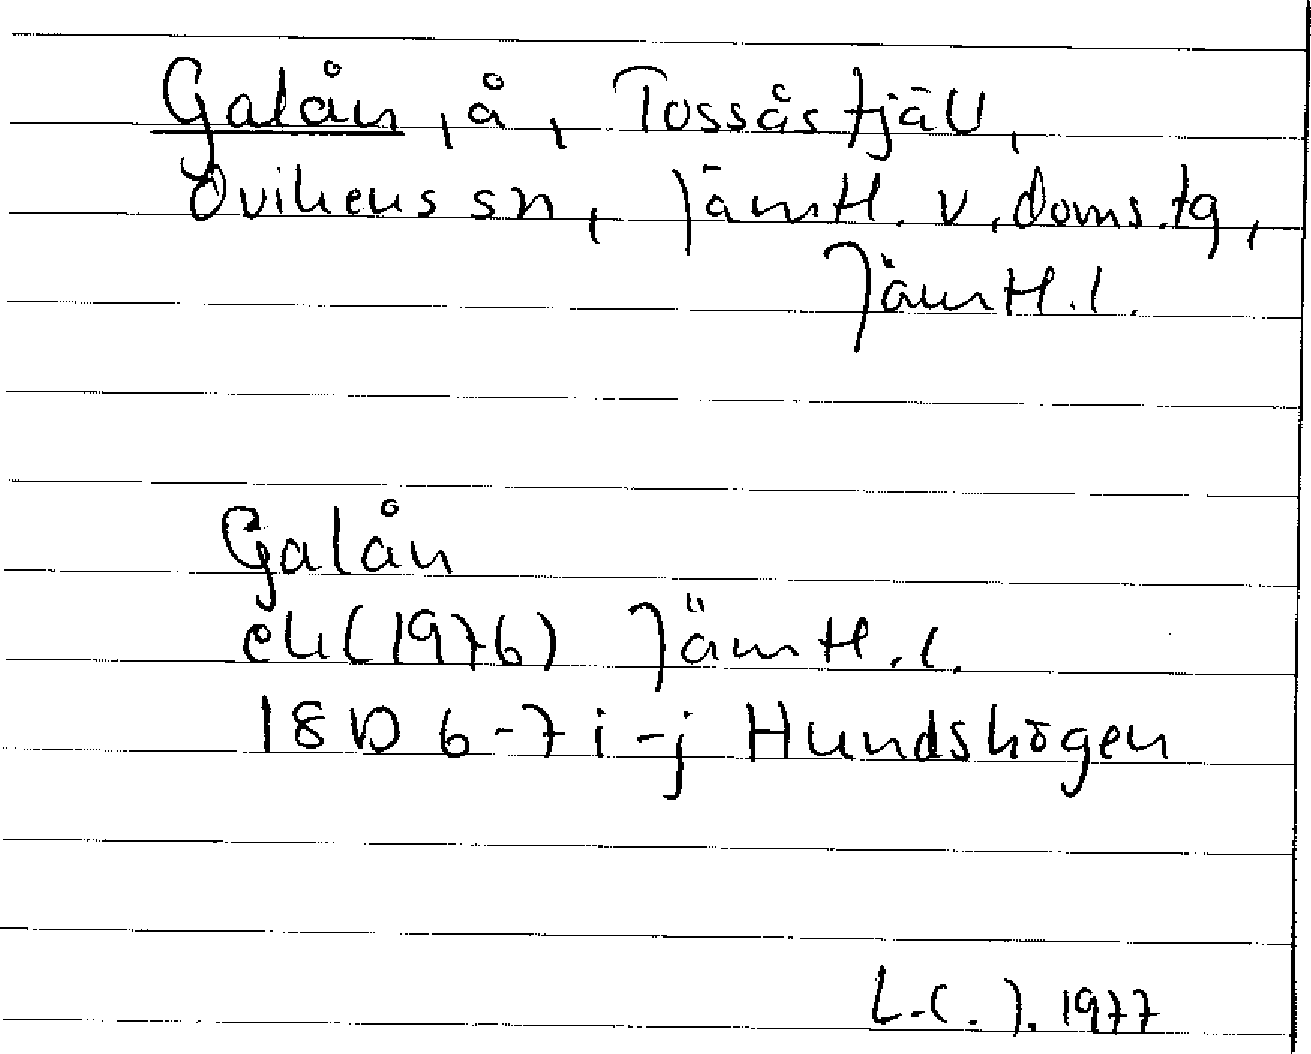 Galån, å, Tossåsfjäll,
Ovikens sn, Jämtl. v. doms.tg,
Jämtl. l.
Galån
ek (1976) Jämtl. l.
18 D 6-7 i-j Hundshögen
L.C.J. 1977